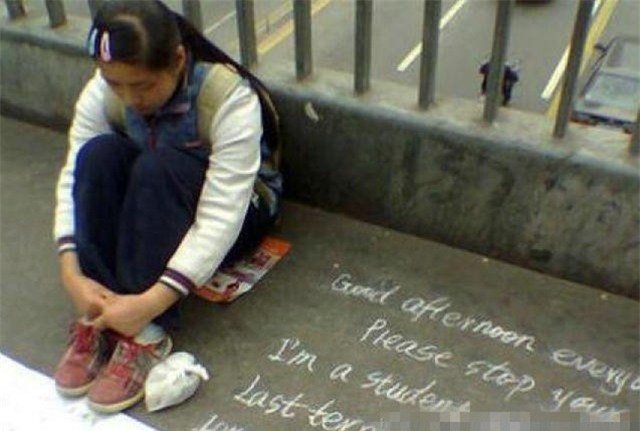 Good afternoon
Please stop your
I'm a student
Last